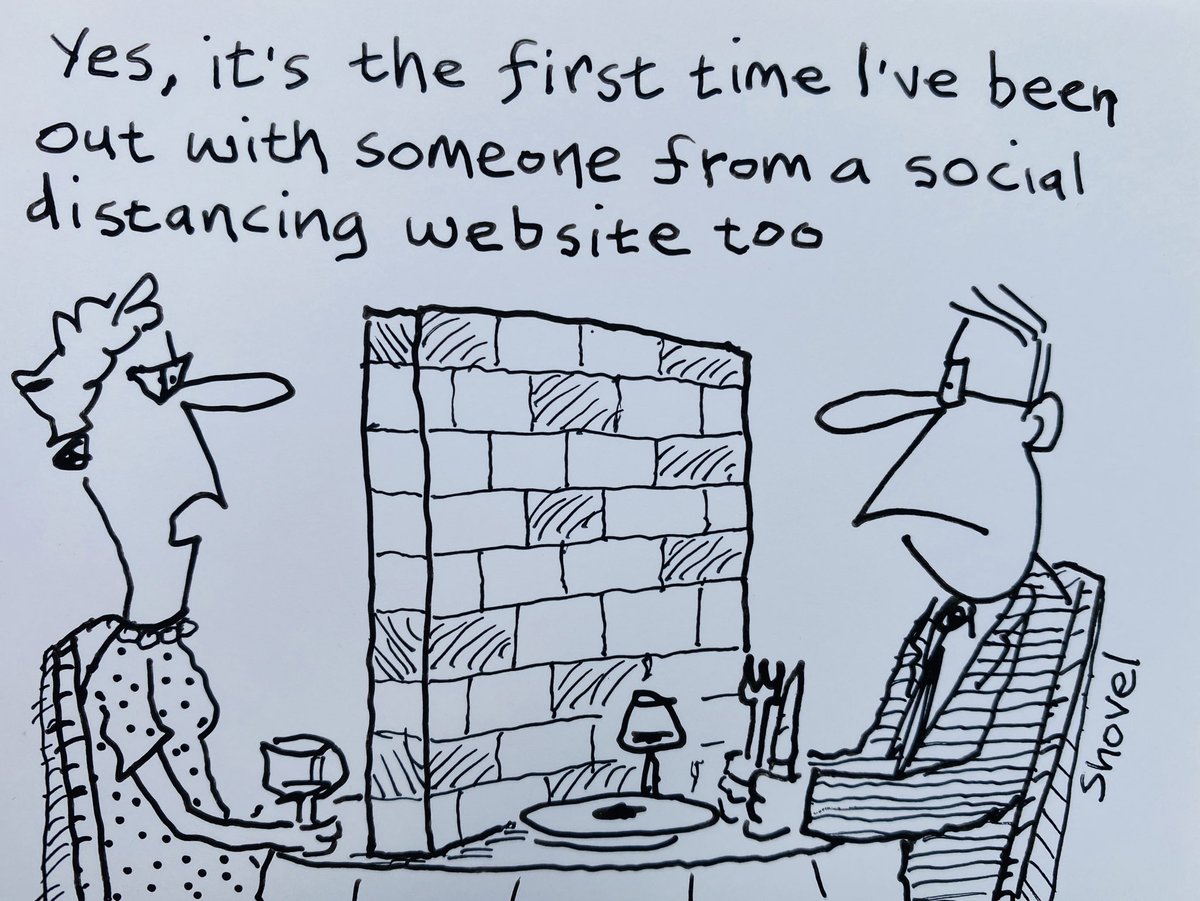 Yes, it's the first time I've been
out with someone from a social
distancing website too
Shovel